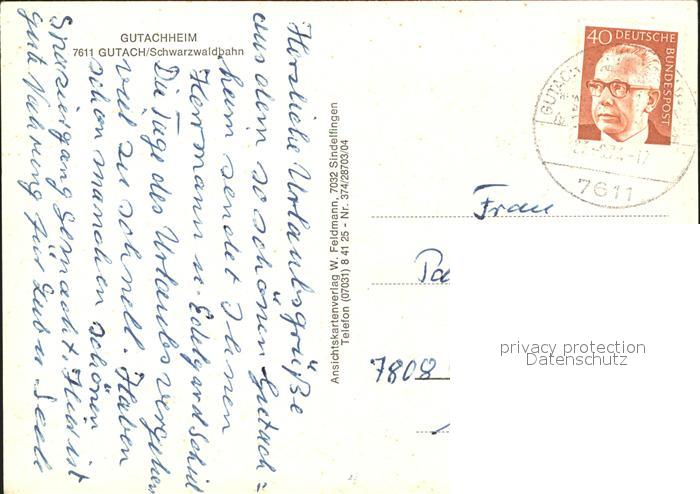 GUTACHHEIM
7611 GUTACH/Schwarzwaldbahn
Herzliche Urlaubsgrüße
aus dem so schönen Gutach=
heim sendet Ihnen
Herrmann u. Edelgard
Die Tage des Urlaubs vergehen
viel zu schnell. Haben
schon manchen schönen
Spaziergang gemacht. Hier ist
gute Nahrung für Leib u. Seele
Ansichtskartenverlag W. Feldmann, 7032 Sindelfingen
Telefon (07031) 8 41 25 - Nr. 374/28703/04
40 DEUTSCHE
BUNDESPOST
GUTACH
7611
Frau
7808
privacy protection
Datenschutz